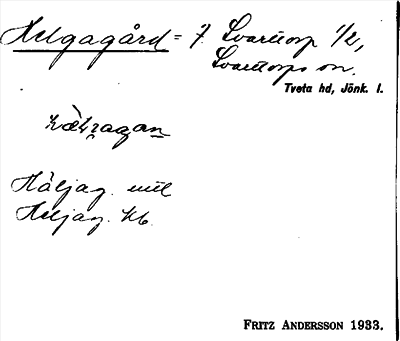 Helgagård = 7 Svarttorp 1/2,
Svarttorps sn.
Tveta hd, Jönk. l.
Häljag.
Heljag. kb
FRITZ ANDERSSON 1933.